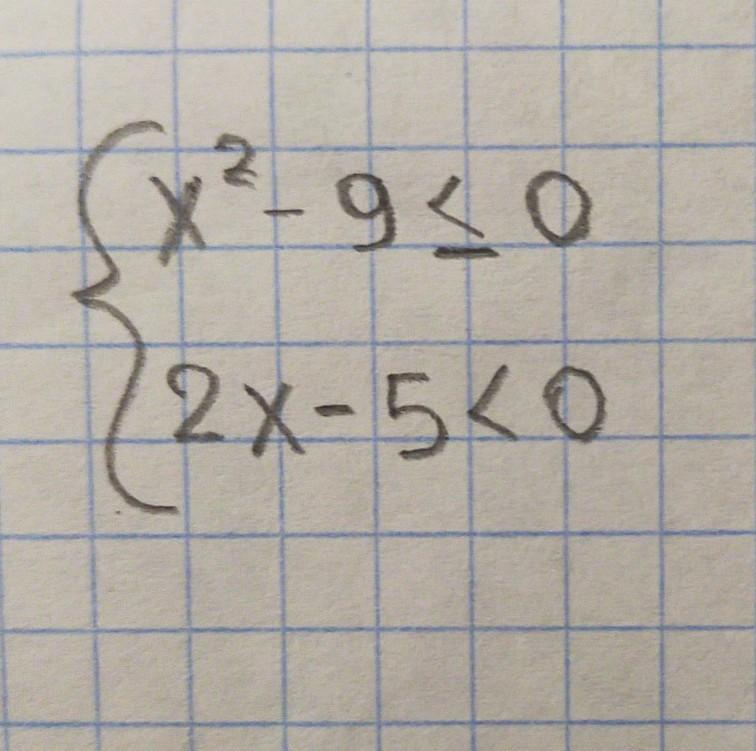 x² - 9 ≤ 0
2x - 5 < 0